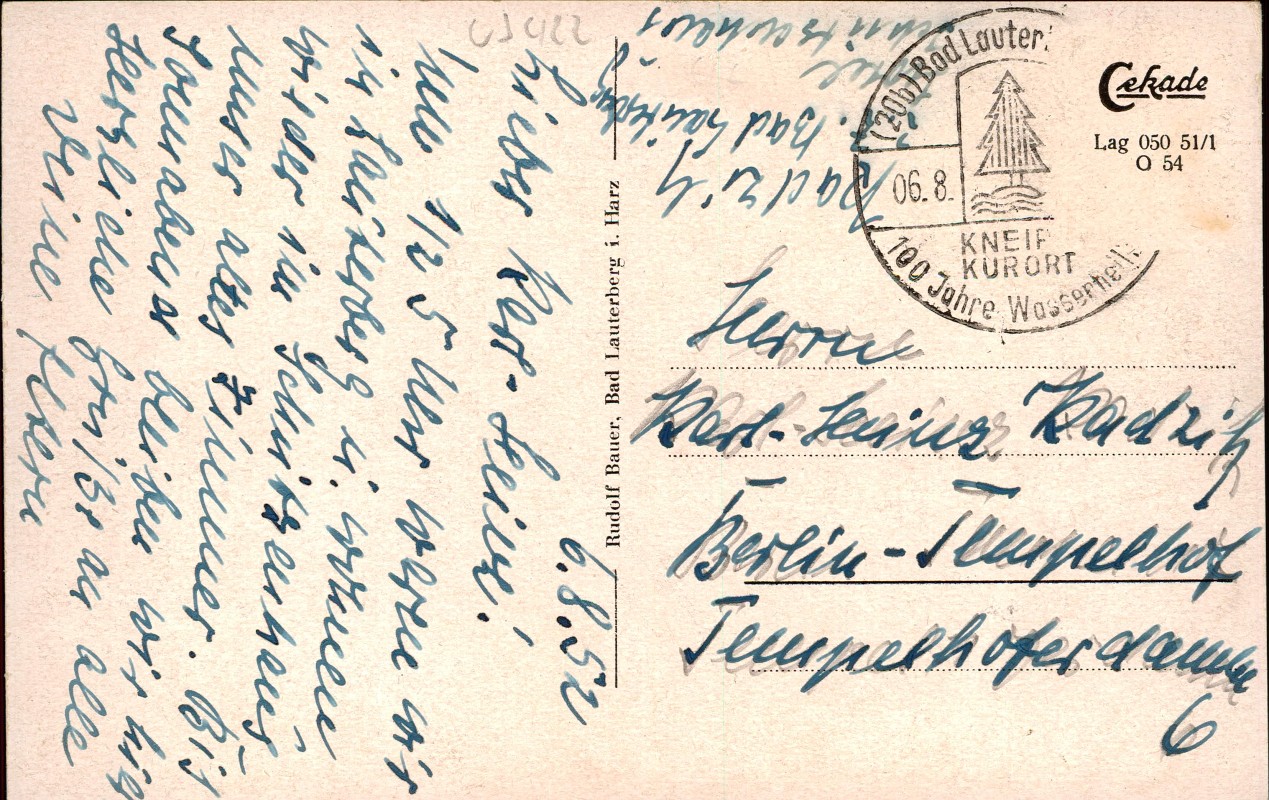 6.8.52
Lieber Karl-Heinz!
Um 1/2 5 Uhr waren wir
in Lauterberg u. wohnen
wieder im Schützenhaus
unser altes Zimmer. Bis
Sonnabend bleiben wir hier
Herzliche Grüße an alle
Deine Eltern
Rudolf Bauer, Bad Lauterberg i. Harz
Kadzik
z. Z. Bad Lauterberg
Schützenhaus
(20b) Bad Lauter
06. 8.
KNEIP
KURORT
100 Jahre Wasserheil
Cekade
Lag 050 51/1
O 54
Herrn
Karl-Heinz Kadzik
Berlin-Tempelhof
Tempelhoferdamm
6